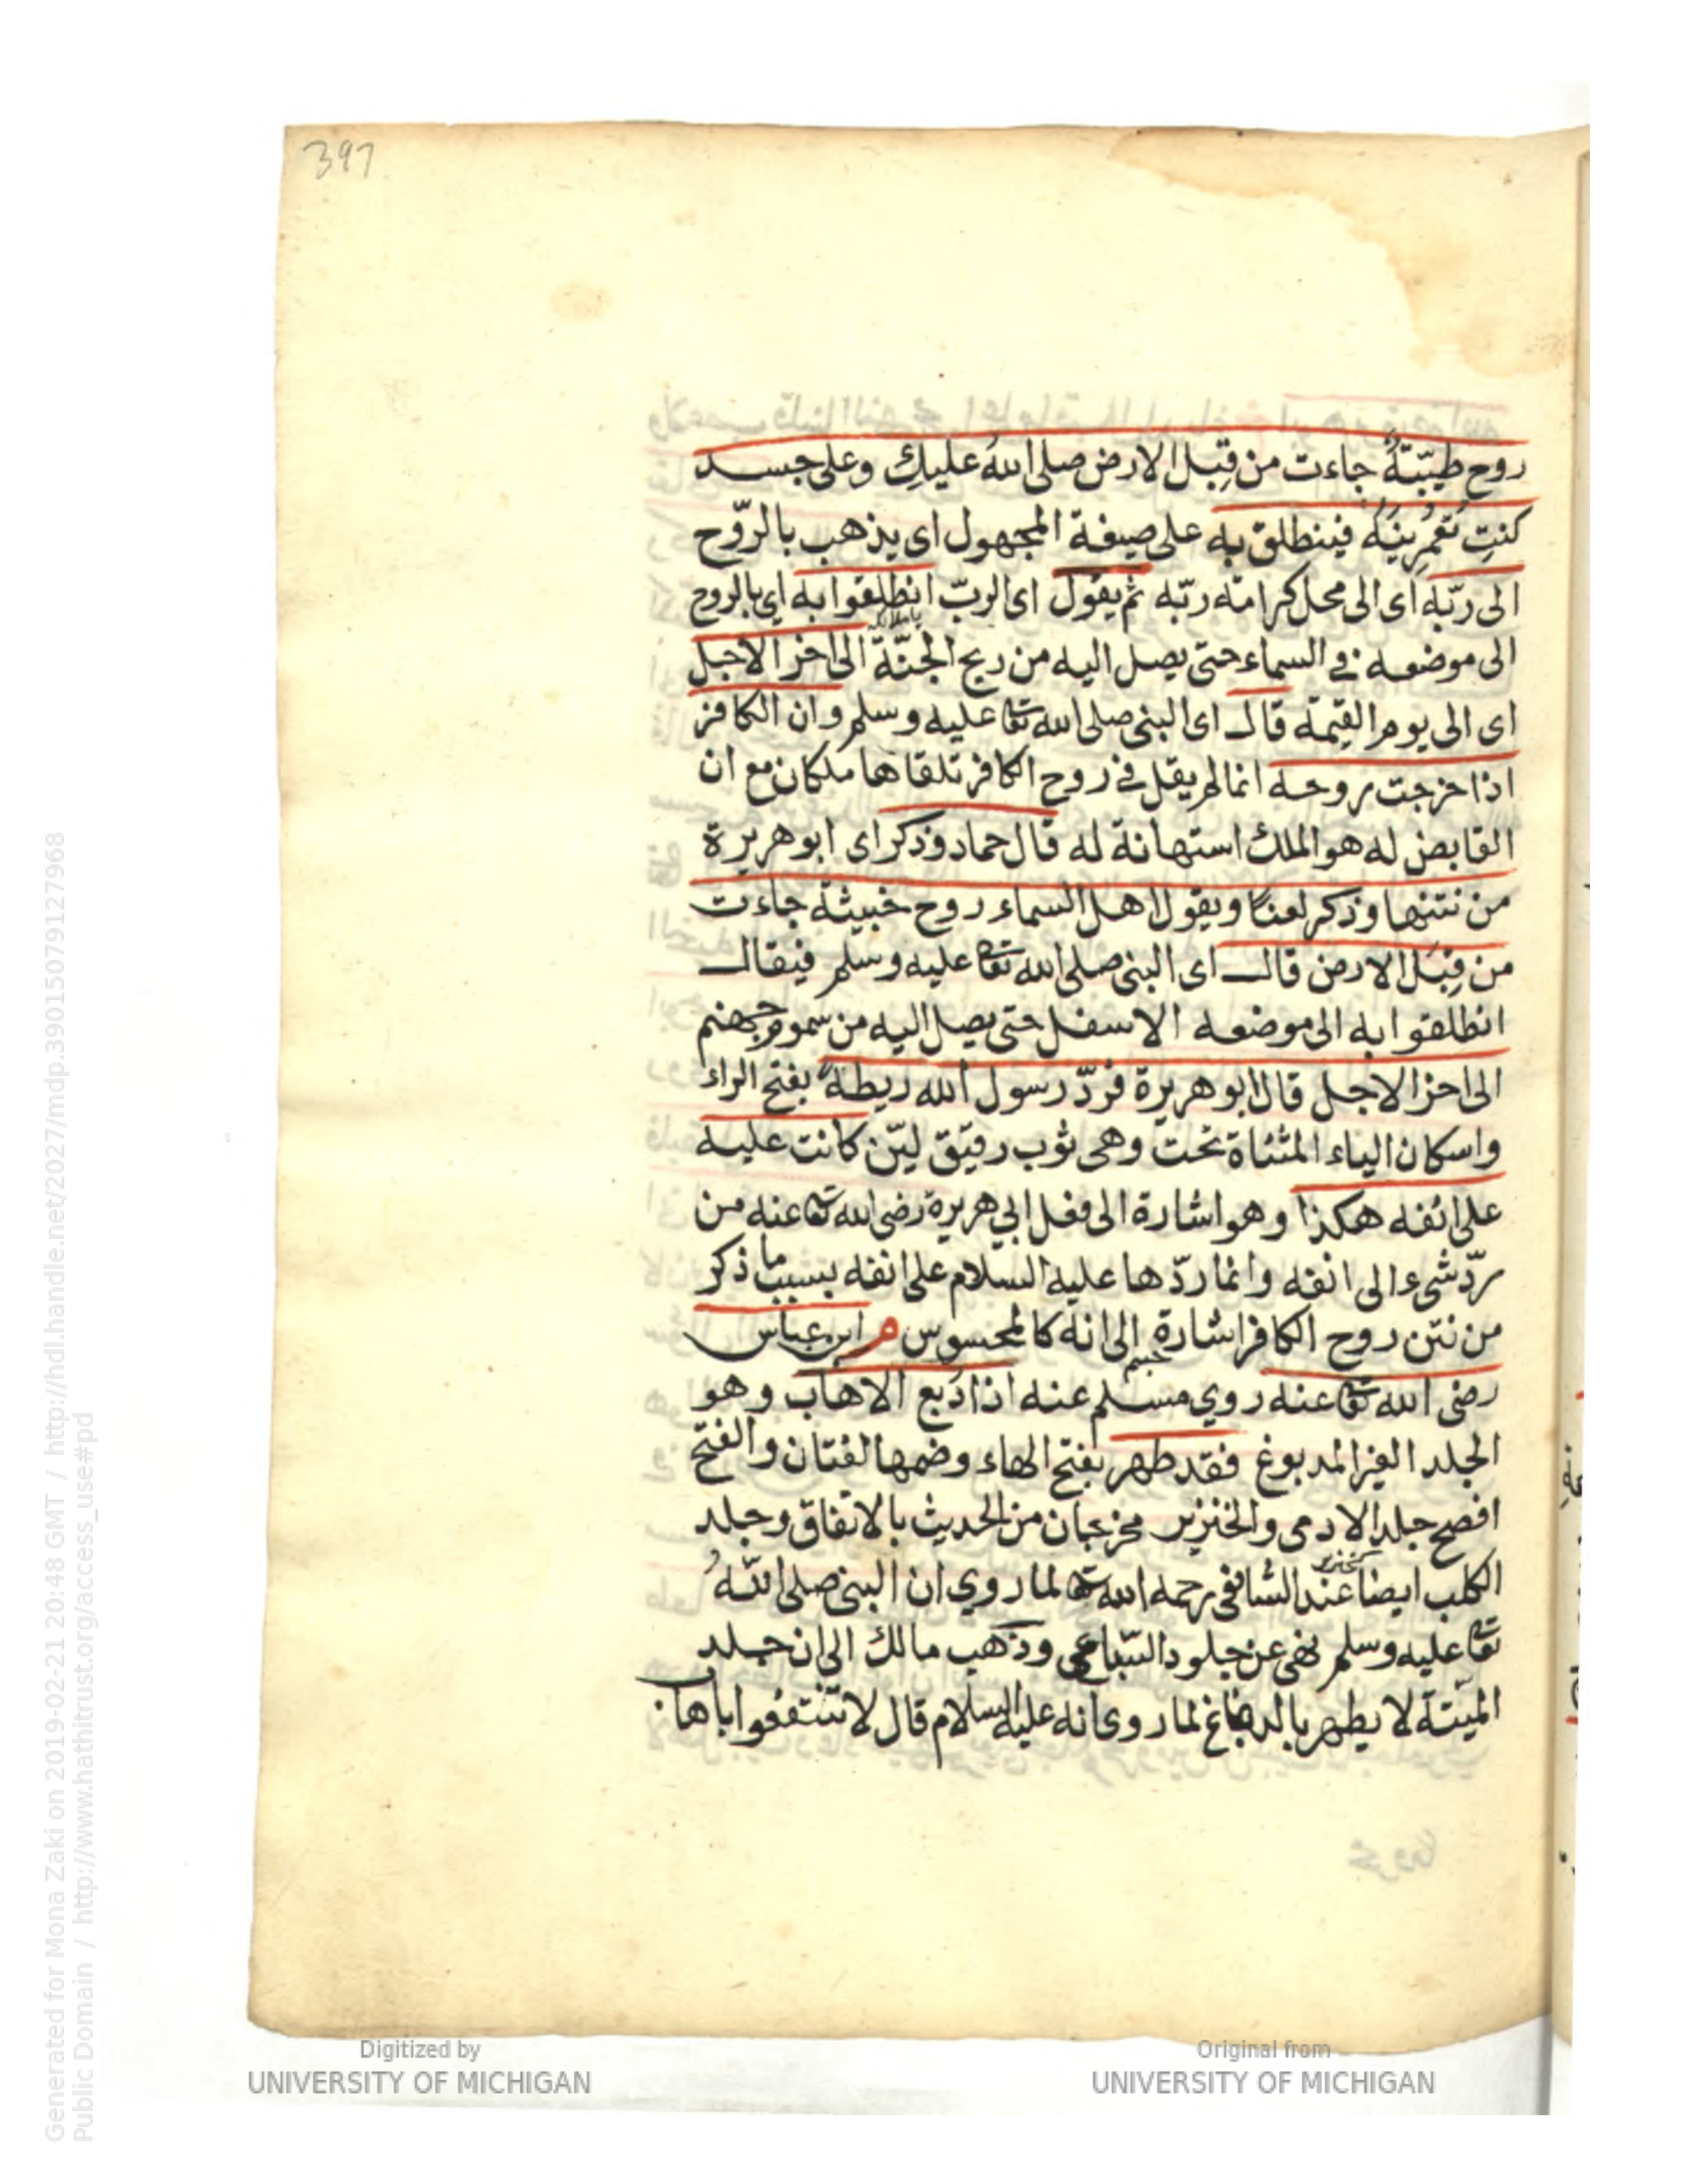 397
روح طيّبةٌ جاءت من قِبَل الارض صلى اللهُ عليكِ وعلى جسد
كنتِ تعْمُرِينَهُ فينطلق به على صيغة المجهول اى يذهب بالرّوح
الى ربّه اى الى محل كرامته ربّه ثم يقول اى الربّ انطلقوا به اي بالروح
الى موضعه في السماء حتى يصل اليه من ريح الجنّة الى اخر الاجل
اى الى يوم القيمة قال اى النبى صلى الله تعا عليه وسلم وان الكافر
اذا خرجت روحه انما لم يقل في روح الكافر تلقاها ملكان مع ان
القابض له هو الملك استهانة له قال حماد وذكر اى ابو هريرة
من نتنها وذكر لعنًا ويقول اهل السماء روح خبيثة جاءت
من قِبَل الارض قال اى النبى صلى الله تعا عليه وسلم فيقال
انطلقوا به الى موضعه الاسفل حتى يصل اليه من سموم جهنم
الى اخر الاجل قال ابو هريرة فردّ رسول الله ريطةً بفتح الراء
واسكان الياء المثناة تحت وهى ثوب رقيق ليّن كانت عليه
على انفه هكذا وهو اشارة الى فعل ابي هريرة رضى الله تعا عنه من
ردّ شىء الى انفه وانما ردّها عليه السلام على انفه بسبب ما ذكر
من نتن روح الكافر اشارة الى انه كالمحسوس م ابن عباس
رضى الله تعا عنه روي مسلم عنه اذا دُبغ الاهاب وهو
الجلد الغير المدبوغ فقد طهر بفتح الهاء وضمها لغتان والفتح
افصح جلد الادمى والخنزير مخرجان من الحديث بالاتفاق وجلد
الكلب ايضا عند الشافعى رحمه الله تعا لما روي ان النبى صلى اللهُ
تعا عليه وسلم نهى عن جلود السّباع وذهب مالك الى ان جلد
الميّتة لا يطهر بالدباغ لما روى انه عليه السلام قال لا تنتفعوا باهاب
Generated for Mona Zaki on 2019-02-21 20:48 GMT / http://hdl.handle.net/2027/mdp.39015079127968
Public Domain / http://www.hathitrust.org/access_use#pd
Digitized by
UNIVERSITY OF MICHIGAN
Original from
UNIVERSITY OF MICHIGAN